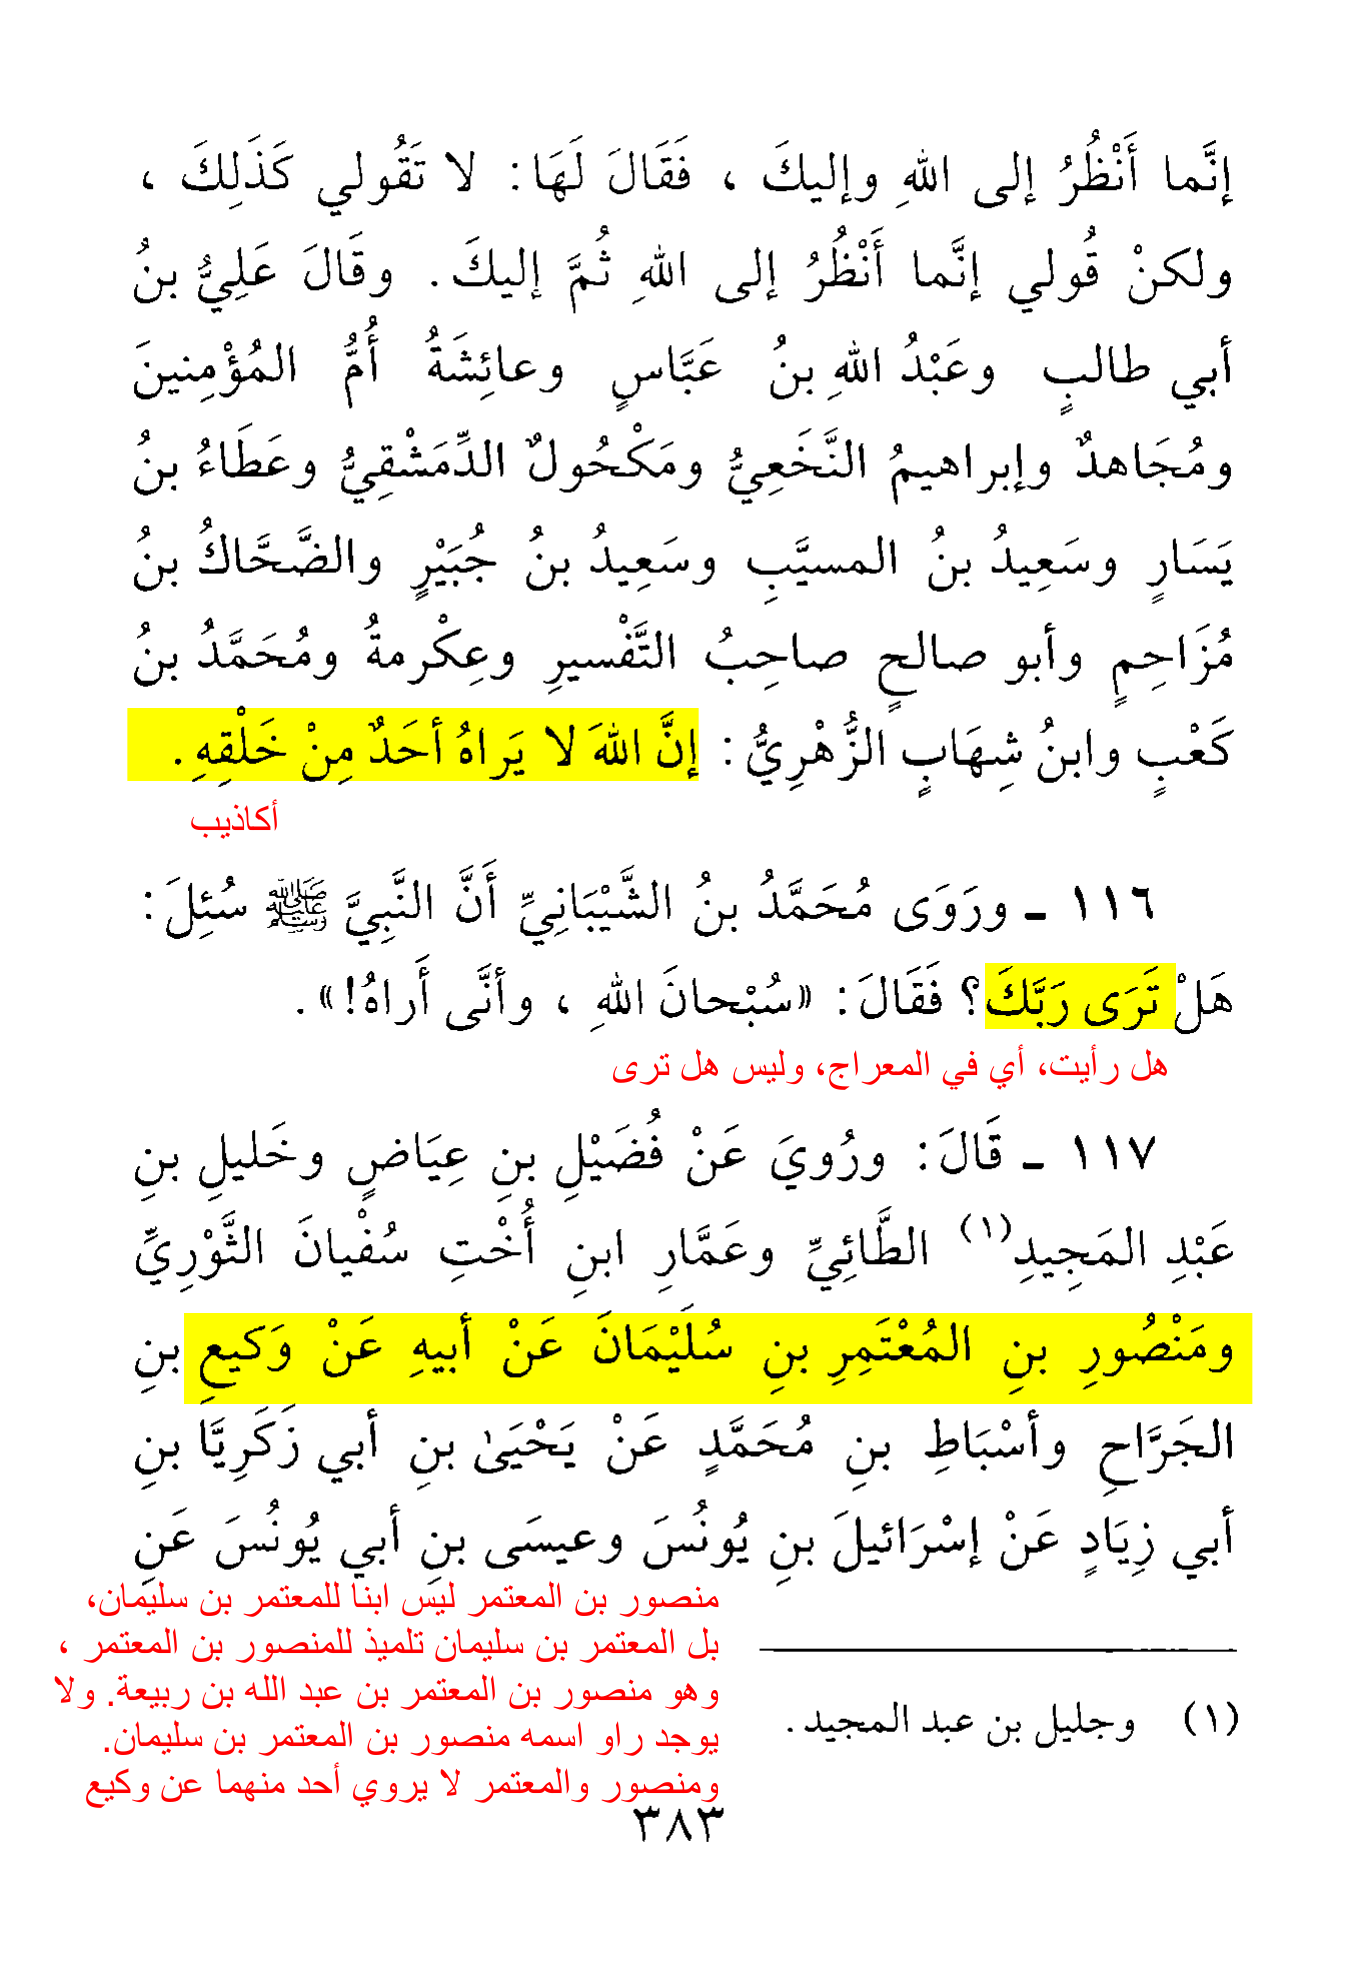 إنَّما أَنْظُرُ إلى اللهِ وإليكَ ، فَقَالَ لَهَا: لا تَقُولي كَذَلِكَ ،
ولكنْ قُولي إنَّما أَنْظُرُ إلى اللهِ ثُمَّ إليكَ. وقَالَ عَلِيُّ بنُ
أبي طالبٍ وعَبْدُ اللهِ بنُ عَبَّاسٍ وعائِشَةُ أُمُّ المُؤْمِنينَ
ومُجَاهدٌ وإبراهيمُ النَّخَعِيُّ ومَكْحُولٌ الدِّمَشْقِيُّ وعَطَاءُ بنُ
يَسَارٍ وسَعِيدُ بنُ المسيَّبِ وسَعِيدُ بنُ جُبَيْرٍ والضَّحَّاكُ بنُ
مُزَاحِمٍ وأبو صالحٍ صاحِبُ التَّفْسيرِ وعِكْرمةُ ومُحَمَّدُ بنُ
كَعْبٍ وابنُ شِهَابٍ الزُّهْرِيُّ: إنَّ اللهَ لا يَراهُ أحَدٌ مِنْ خَلْقِهِ.
أكاذيب
١١٦ ـ ورَوَى مُحَمَّدُ بنُ الشَّيْبَانِيِّ أَنَّ النَّبِيَّ ﷺ سُئِلَ:
هَلْ تَرَى رَبَّكَ؟ فَقَالَ: «سُبْحانَ اللهِ ، وأنَّى أَراهُ!».
هل رأيت، أي في المعراج، وليس هل ترى
١١٧ ـ قَالَ: ورُويَ عَنْ فُضَيْلِ بنِ عِيَاضٍ وخَليلِ بنِ
عَبْدِ المَجِيدِ(١) الطَّائِيِّ وعَمَّارِ ابنِ أُخْتِ سُفْيانَ الثَّوْرِيِّ
ومَنْصُورِ بنِ المُعْتَمِرِ بنِ سُلَيْمَانَ عَنْ أبيهِ عَنْ وَكيعِ بنِ
الجَرَّاحِ وأسْبَاطِ بنِ مُحَمَّدٍ عَنْ يَحْيَىٰ بنِ أبي زَكَرِيَّا بنِ
أبي زِيَادٍ عَنْ إسْرَائيلَ بنِ يُونُسَ وعيسَى بنِ أبي يُونُسَ عَنِ
منصور بن المعتمر ليس ابنا للمعتمر بن سليمان،
بل المعتمر بن سليمان تلميذ للمنصور بن المعتمر ،
وهو منصور بن المعتمر بن عبد الله بن ربيعة. ولا
يوجد راو اسمه منصور بن المعتمر بن سليمان.
ومنصور والمعتمر لا يروي أحد منهما عن وكيع
(١) وجليل بن عبد المجيد.
٣٨٣